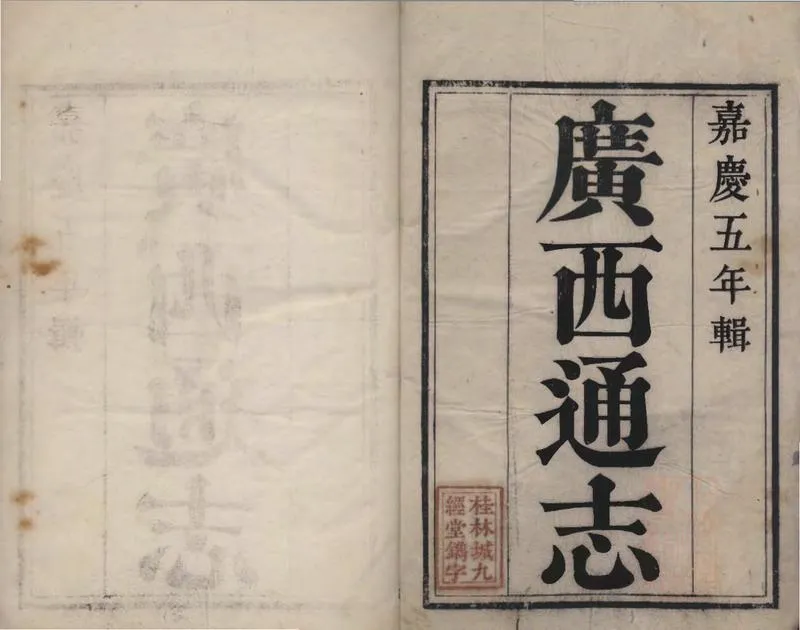 嘉慶五年輯
廣西通志
桂林城九
經堂鐫字